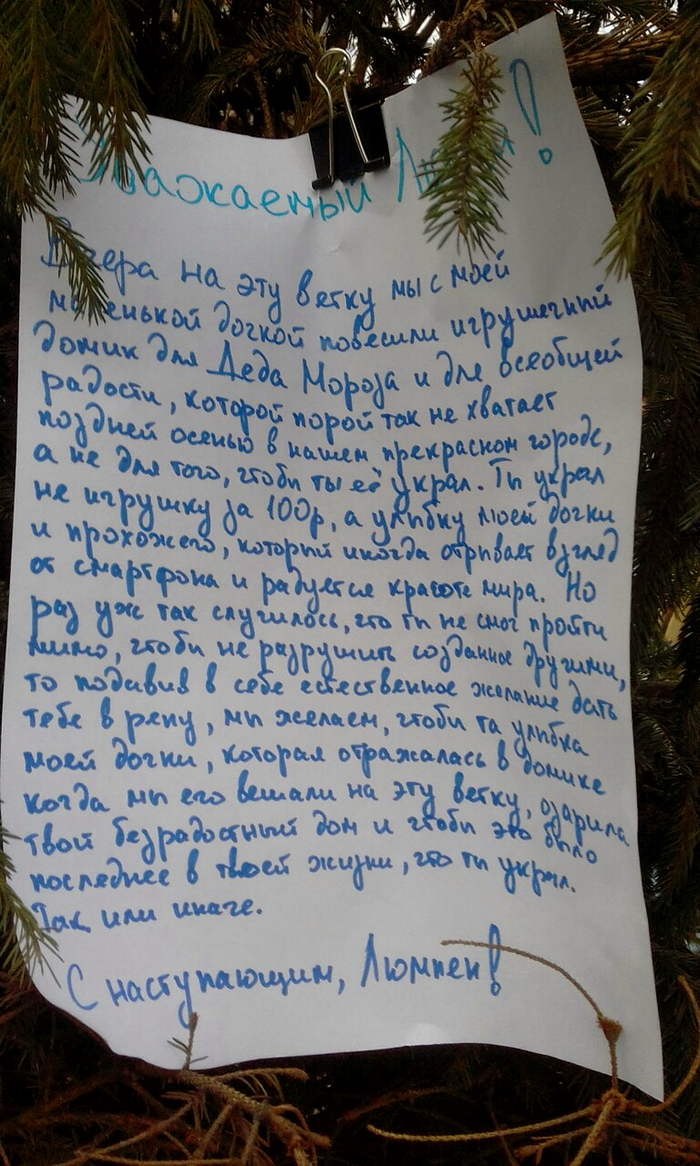 Уважаемый
Вчера на эту ветку мы с моей
маленькой дочкой повесили игрушечный
домик для Деда Мороза и для всеобщей
радости, которой порой так не хватает
поздней осенью в нашем прекрасном городе,
а не для того, чтобы ты её украл. Ты украл
не игрушку за 100р, а улыбку моей дочки
и прохожего, который иногда отрывает взгляд
от смартфона и радуется красоте мира. Но
раз уж так случилось, что ты не смог пройти
мимо, чтобы не разрушить созданное другими,
то подавив в себе естественное желание дать
тебе в репу, мы желаем, чтобы та улыбка
моей дочки, которая отражалась в домике
когда мы его вешали на эту ветку, озарила
твой безрадостный дом и чтобы это было
последнее в твоей жизни, что ты украл.
Так или иначе.
С наступающим, Люмпен!